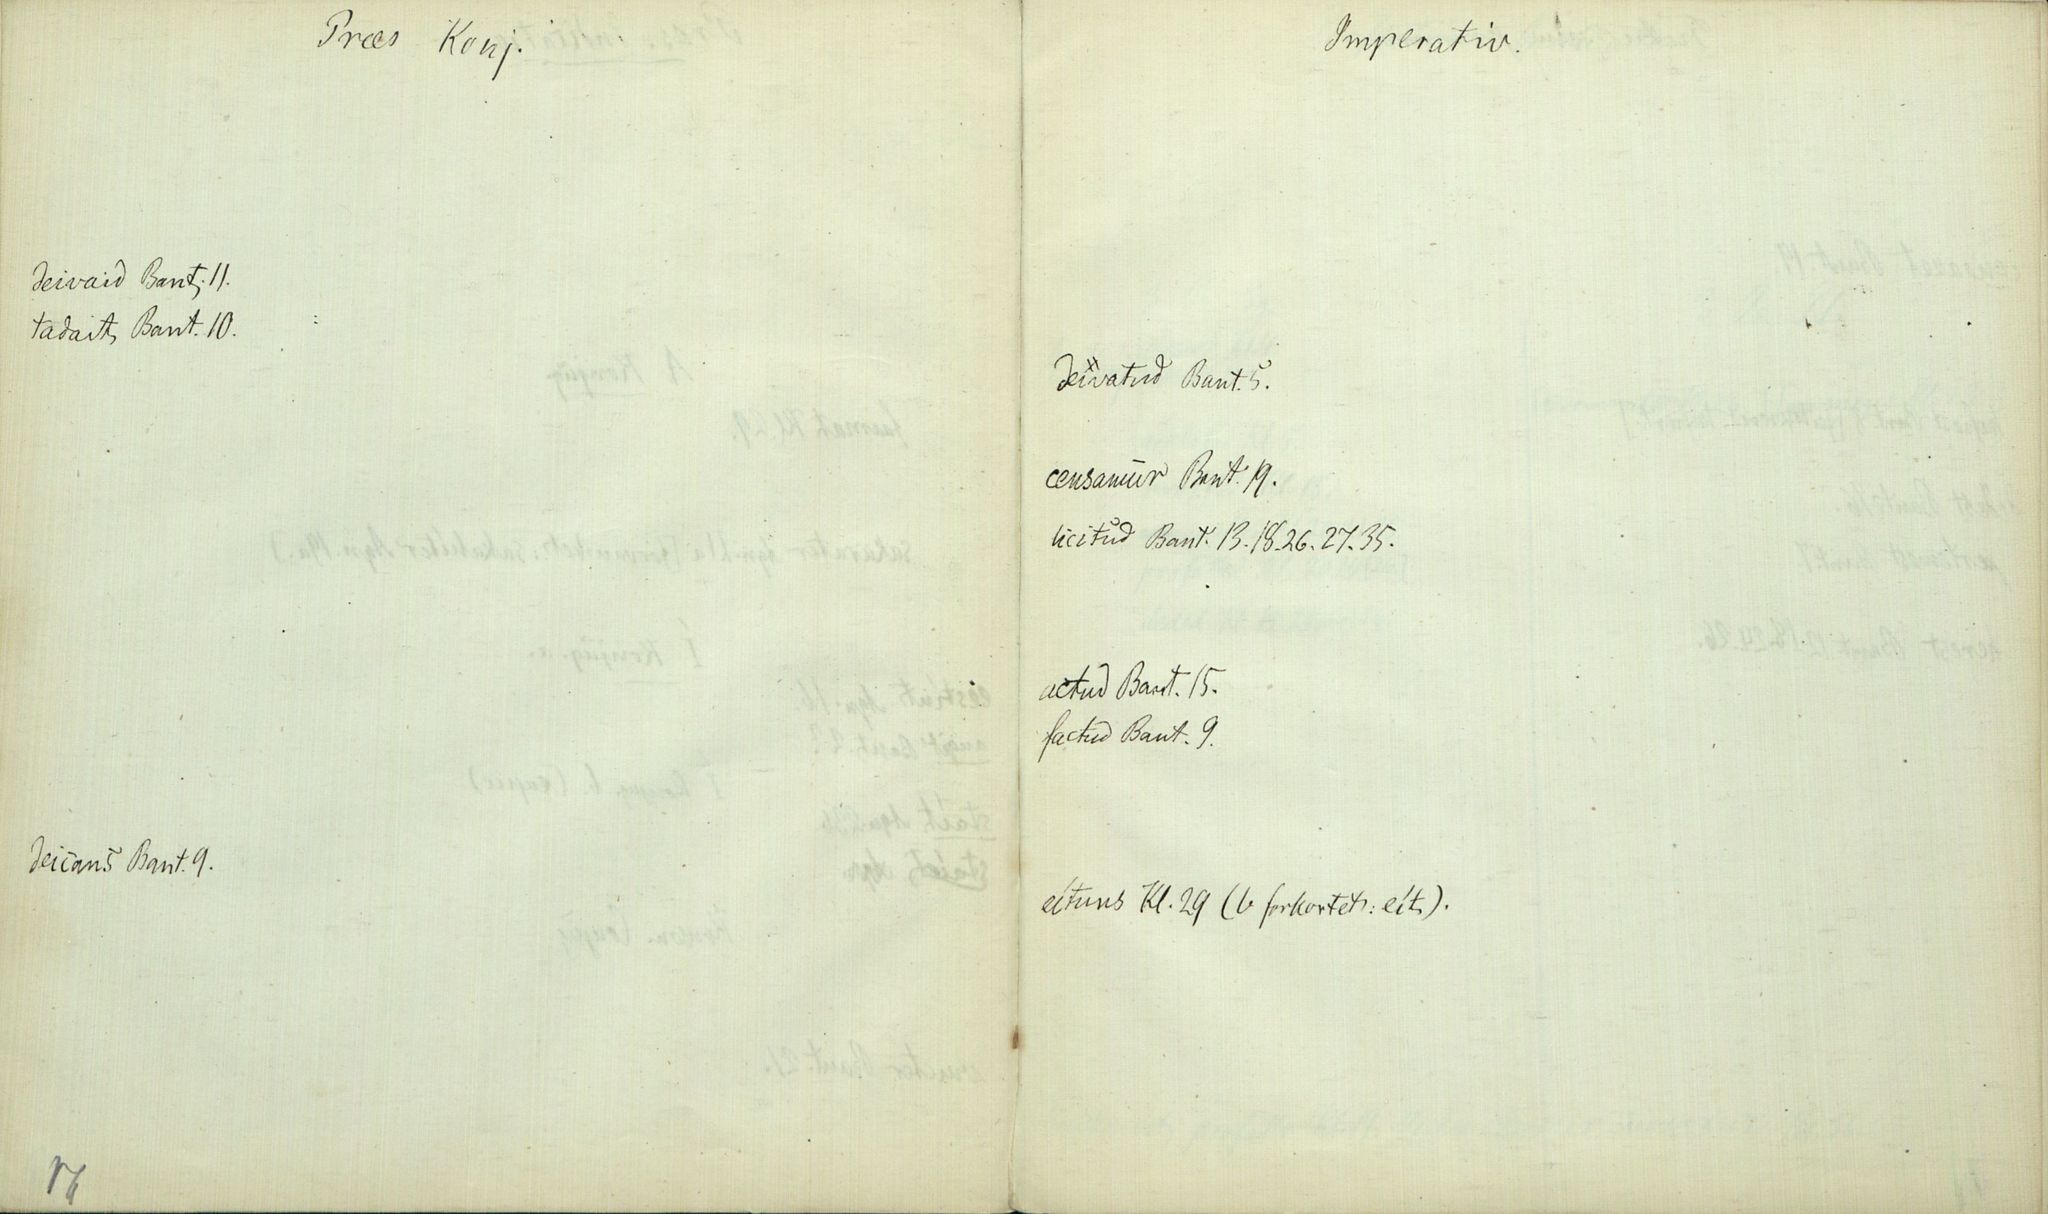 Præs Konj.
deivaid Bant. 11.
tadait, Bant. 10.
deicans Bant. 9.
Imperativ.
deivatud Bant. 5.
censamur Bant. 19.
licitud Bant. 13. 18. 26. 27. 35.
actud Bant. 15.
factud Bant. 9.
eituns Kl. 29 (b forkortet: eit,).